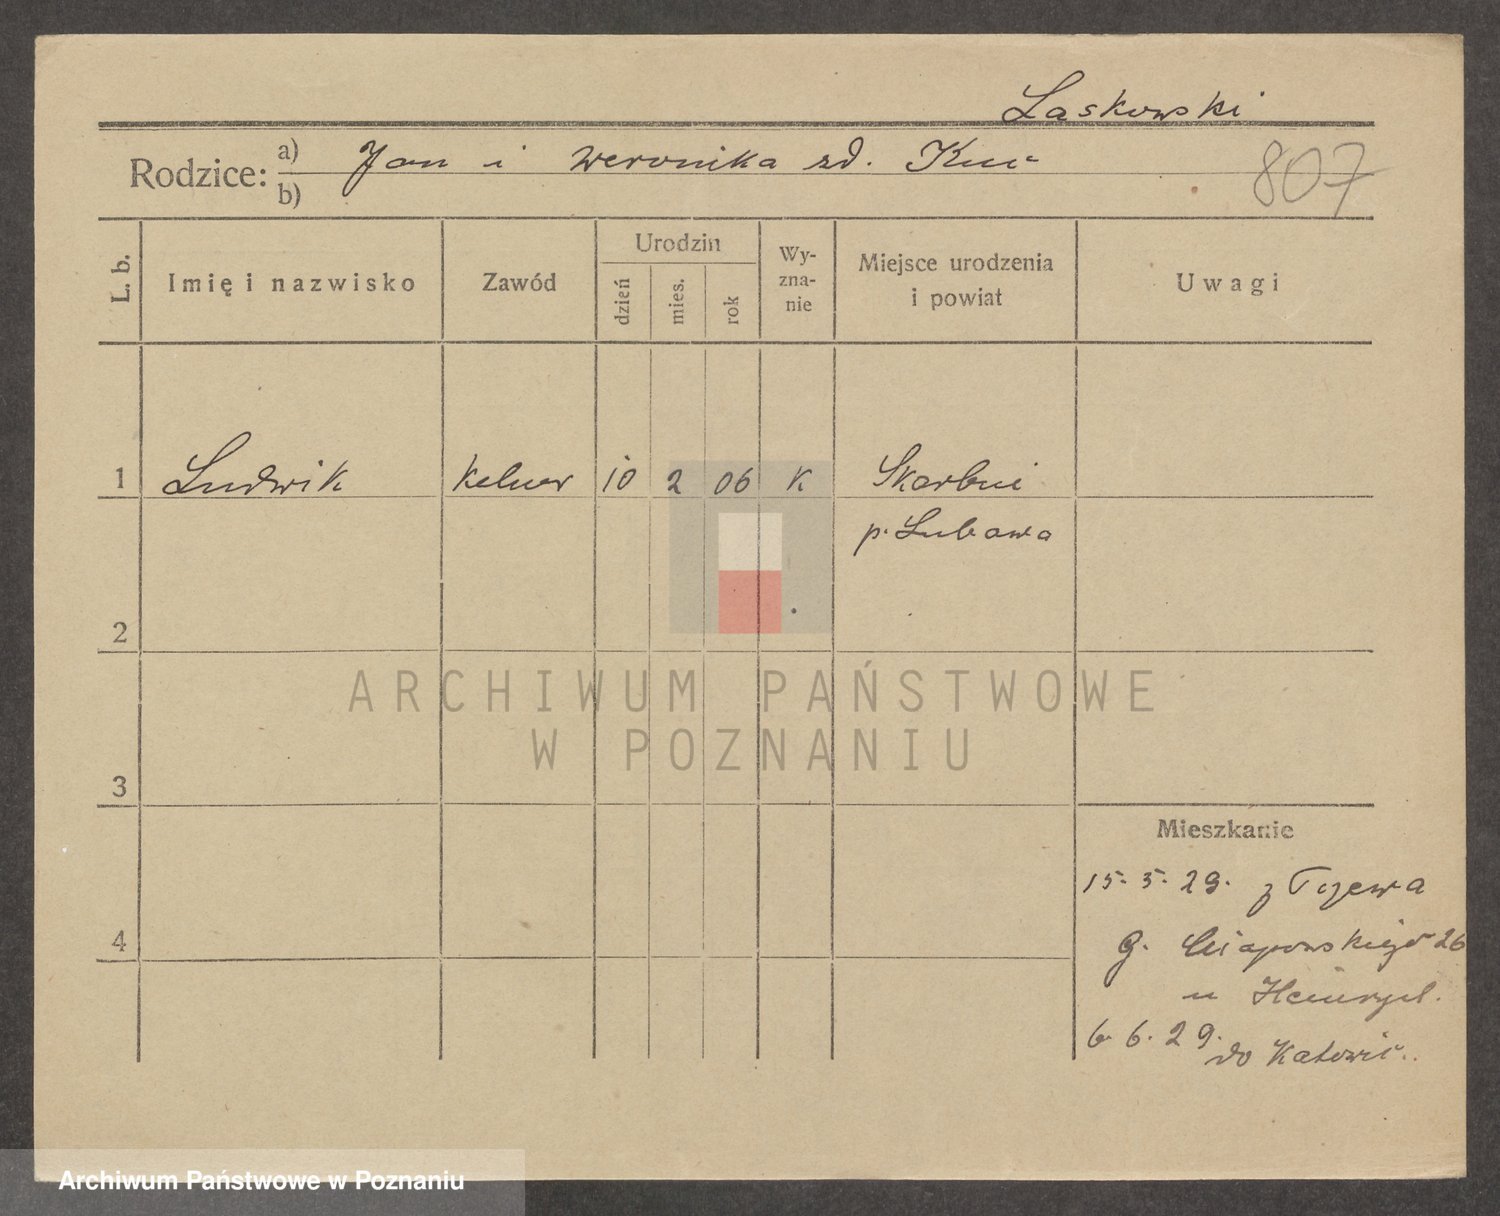 Laskowski
Rodzice: a) Jan i Weronika zd. Kuć
b)
807
L. b.
Imię i nazwisko
Zawód
Urodzin
dzień
mies.
rok
Wy-
zna-
nie
Miejsce urodzenia
i powiat
Uwagi
1 Ludwik kelner 10 2 06 K Skarbni
p. Lubawa
2
3
4
Mieszkanie
15. 5. 29. z Tczewa
G. 26
u
6. 6. 29.
do Katowic.
ARCHIWUM PAŃSTWOWE
W POZNANIU
Archiwum Państwowe w Poznaniu